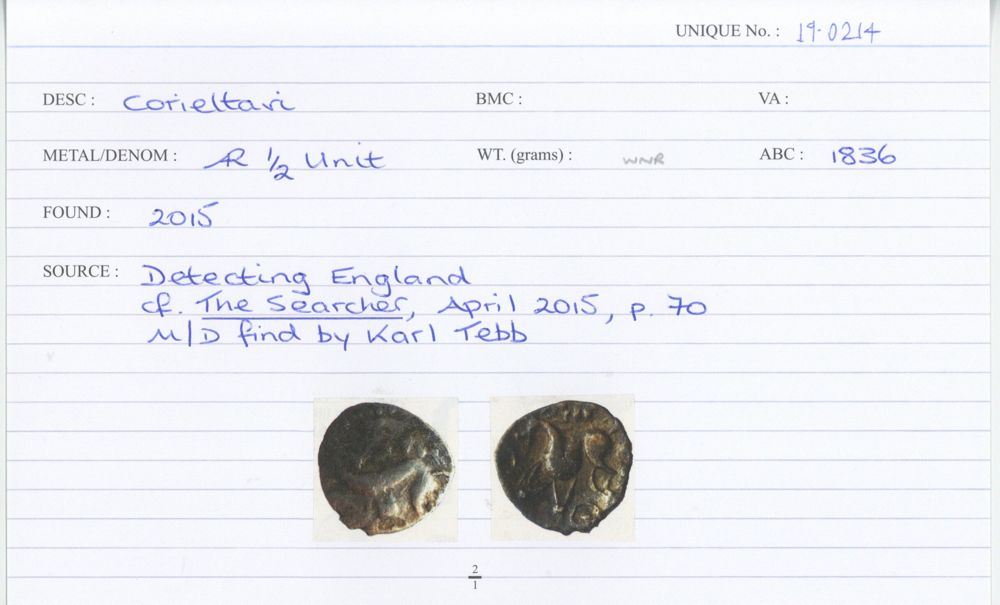 UNIQUE No. : 19.0214
DESC : Corieltavi BMC : VA :
METAL/DENOM : AR 1/2 Unit WT. (grams) : WNR ABC : 1836
FOUND : 2015
SOURCE : Detecting England
cf. The Searcher, April 2015, p. 70
M/D find by Karl Tebb
2
1